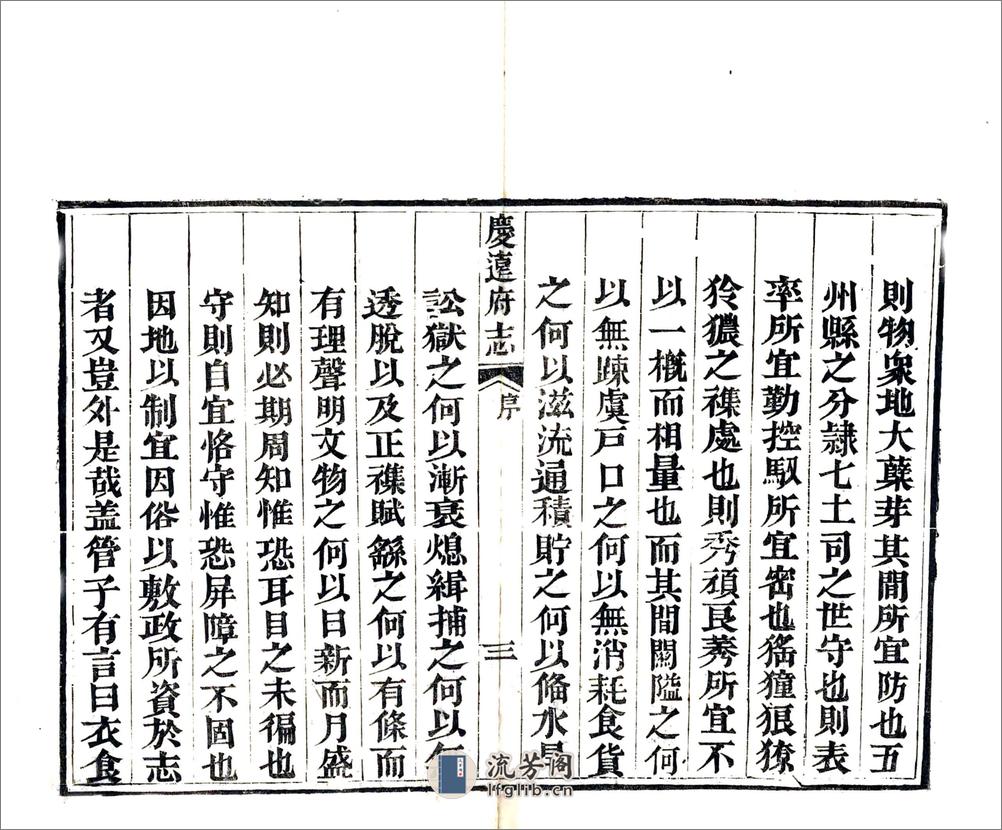 則物衆地大蘖芽其間所宜防也五
州縣之分隷七土司之世守也則表
率所宜勤控馭所宜密也猺獞狼獠
狑㺜之襍處也則秀頑良莠所宜不
以一概而相量也而其間關隘之何
以無疎虞戸口之何以無消耗食貨
之何以滋流通積貯之何以備水旱
慶遠府志
序
三
訟獄之何以漸衰熄緝捕之何以無
透脫以及正襍賦繇之何以有條而
有理聲明文物之何以日新而月盛
知則必期周知惟恐耳目之未徧也
守則自宜恪守惟恐屏障之不固也
因地以制宜因俗以敷政所資於志
者又豈外是哉盖管子有言曰衣食
流芳阁
lfglib.cn